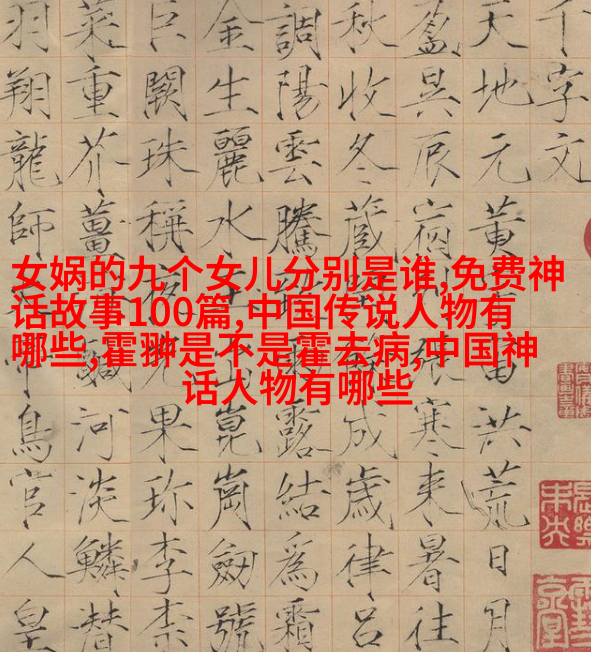 女娲的九个女儿分别是谁,免费神
话故事100篇,中国传说人物有
哪些,霍翀是不是霍去病,中国神
话人物有哪些
千字文
天地元黄宙洪荒日月
盈昃辰宿列張寒来暑往
秋收冬蔵成歳律吕
調陽雲騰致雨露結為霜
金生麗水玉出崑崗劒號
巨闕珠稱夜光果珎李柰
菜重芥薑鹹河淡鱗潜
羽翔龍師火帝鳥官人皇